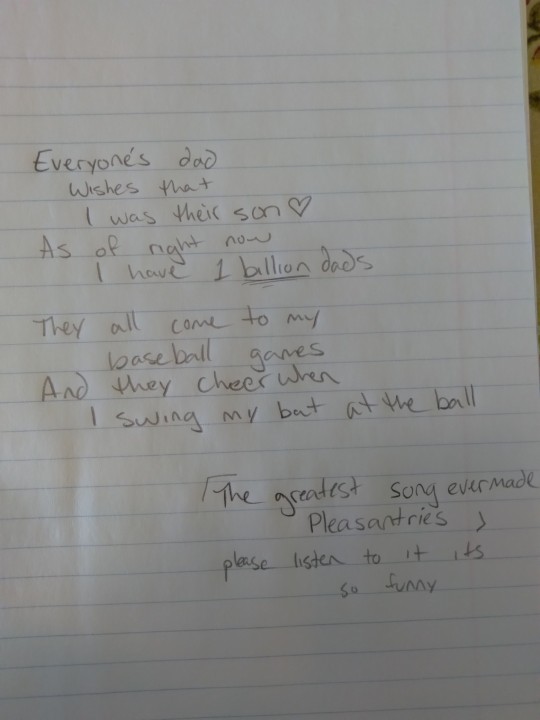 Everyone's dad
Wishes that
I was their son ♡
As of right now
I have 1 billion dads
They all come to my
baseball games
And they cheer when
I swing my bat at the ball
The greatest song ever made
Pleasantries
please listen to it its
so funny